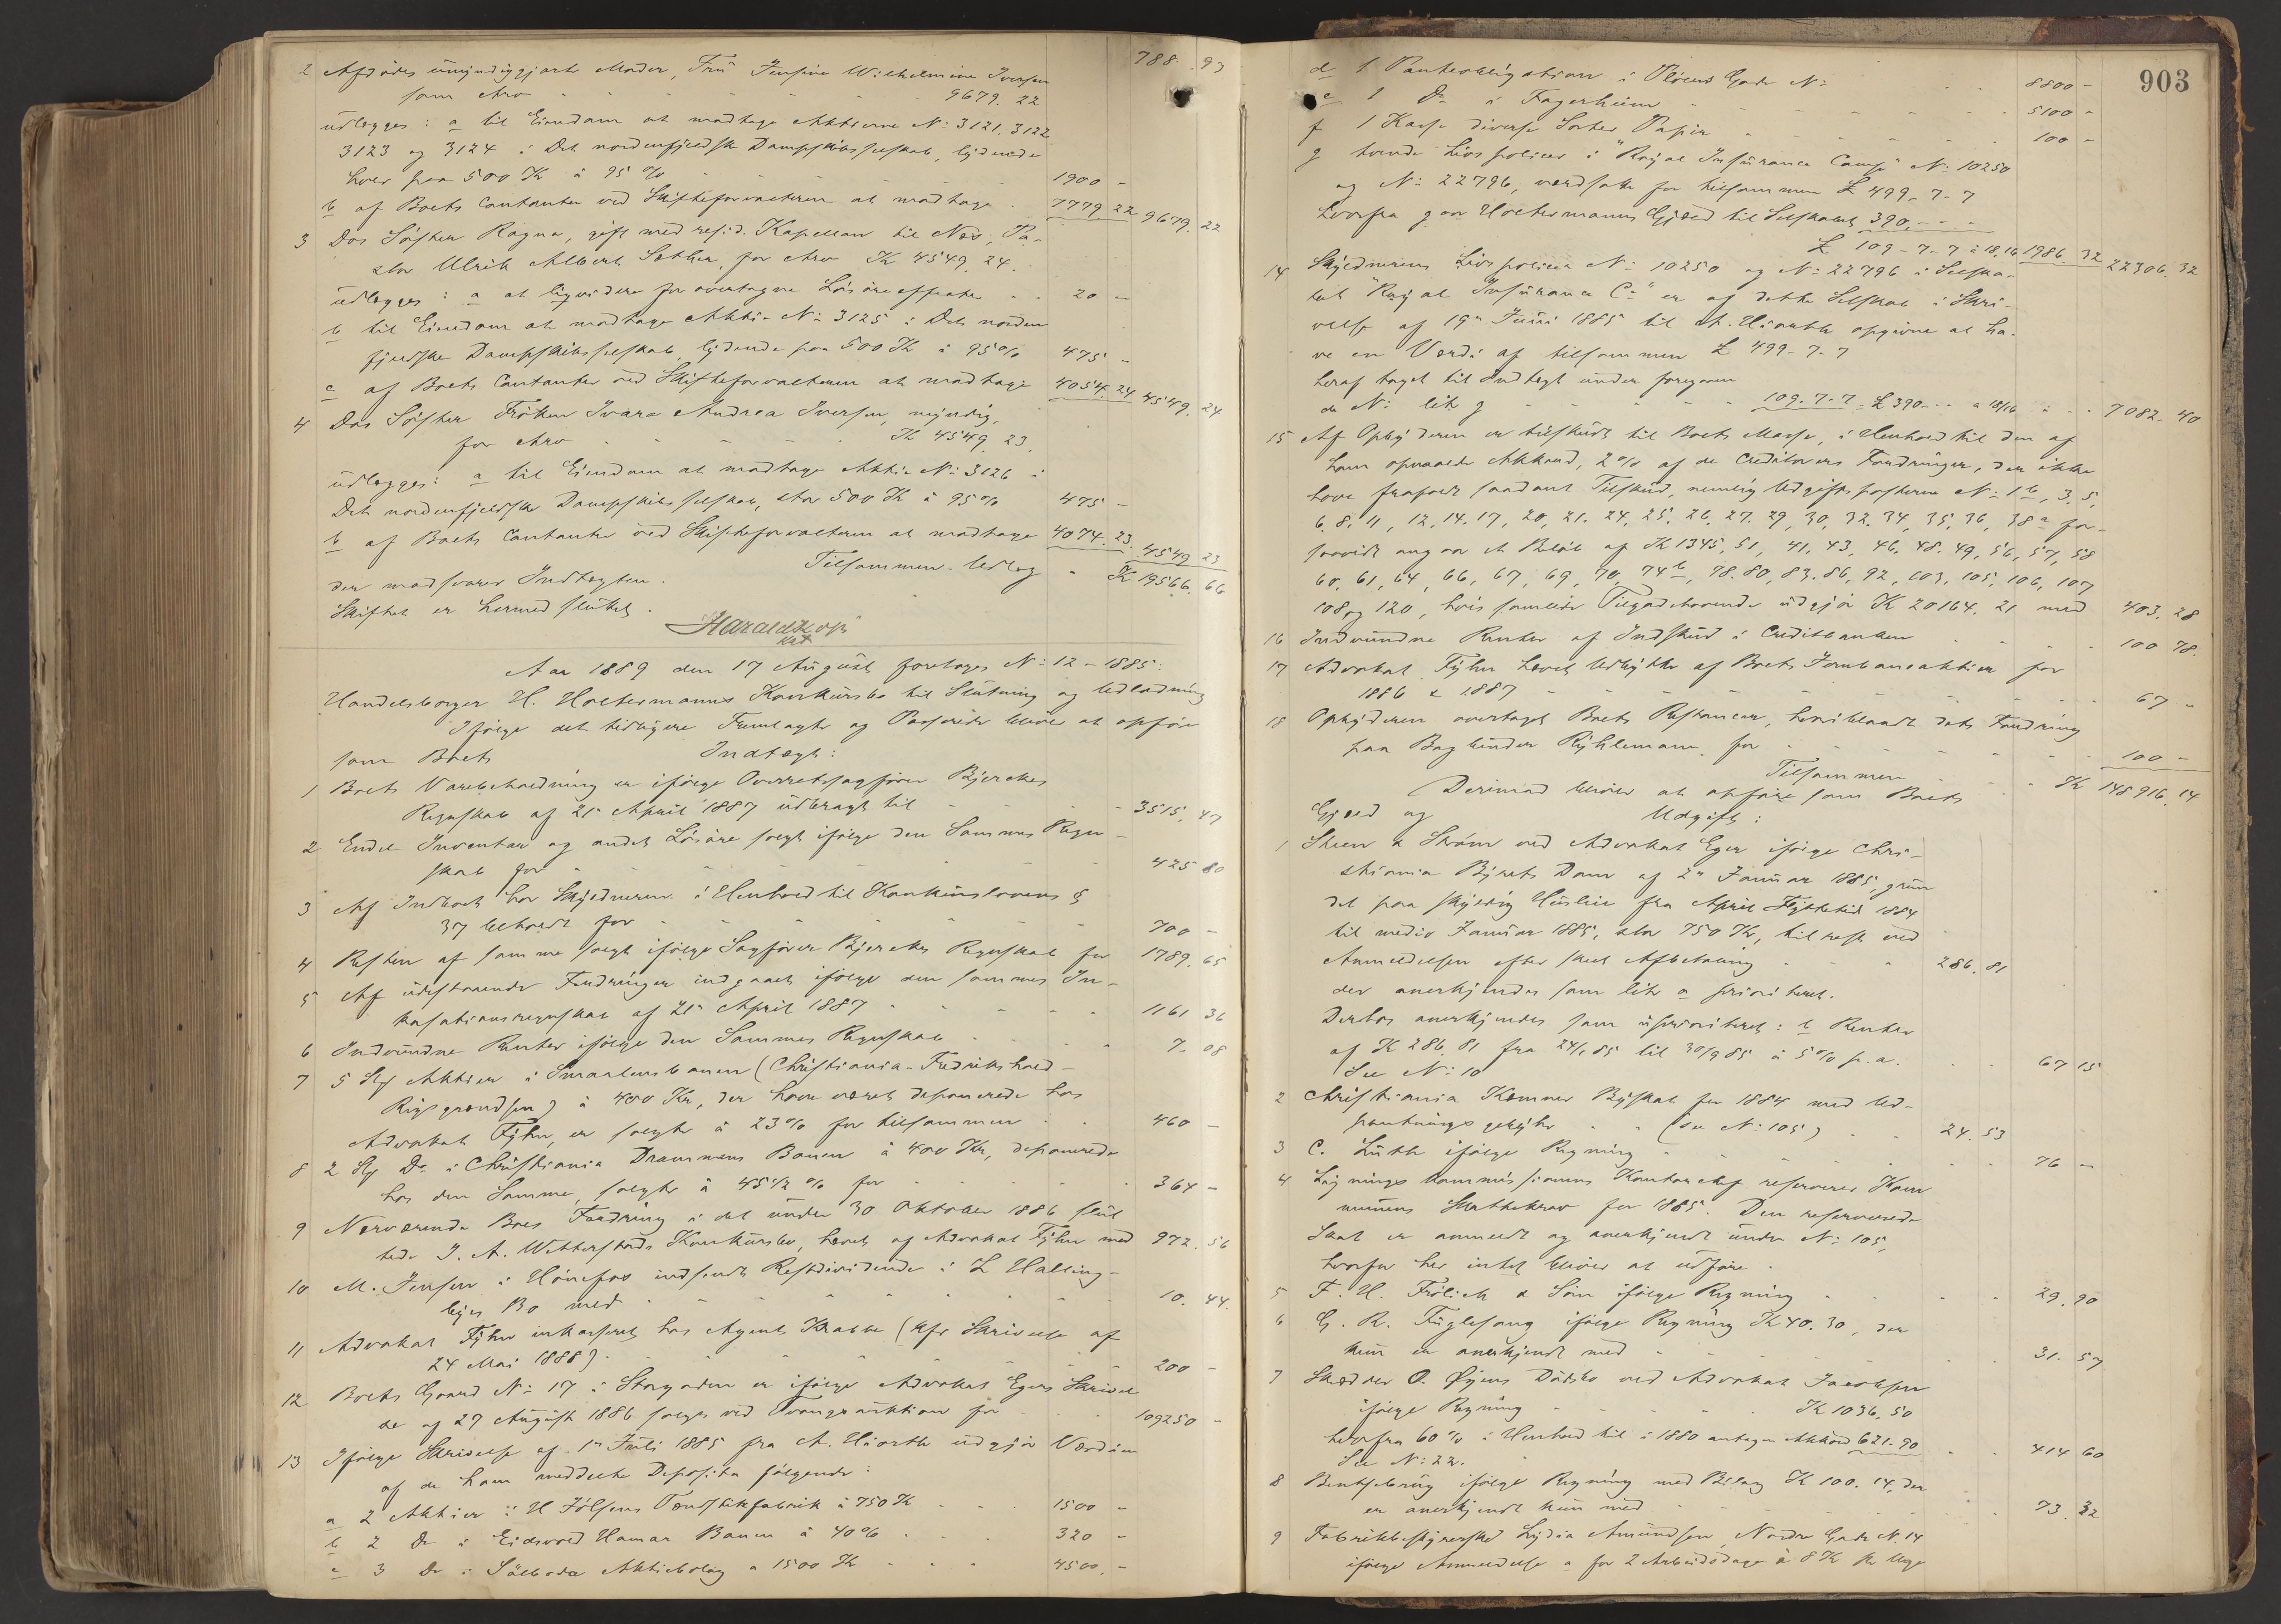 788. 93
2 Afdødes umyndiggjorte Moder, Fru Jensine Wilhelmine Iversen
som Arv 9679. 22
udlægges: a til Eiendom at modtage Aktierne No 3121. 3122
3123 og 3124 i Det nordenfjeldske Dampskibsselskab, lydende
hver paa 500 Kr à 95 % 1900 -
b af Boets Contanter ved Skifteforvalteren at modtage 7779. 22 9679. 22
3 Dos Søster Ragna, gift med resid. Kapellan til Næs, Pa-
stor Ulrik Albert Sether, for Arv Kr 4549. 24.
udlægges: a at liqvidere for overtagne Løsøreeffecter 20 -
b til Eiendom at modtage Aktie No 3125 i Det norden
fjeldske Dampskibsselskab, lydende paa 500 Kr à 95 % 475 -
c af Boets Contanter ved Skifteforvalteren at modtage 4054. 24 4549. 24
4 Dos Søster Frøken Ivara Andrea Iversen, myndig,
for Arv Kr 4549. 23.
udlægges: a til Eiendom at modtage Aktie No 3126 i
Det nordenfjeldske Dampskibsselskab, stor 500 Kr à 95 % 475 -
b af Boets Contanter ved Skifteforvalteren at modtage 4074. 23. 4549. 23
Tilsammen Udlæg Kr 19566. 66
der modsvarer Indtægten.
Skiftet er hermed sluttet.
Aar 1889 den 17 August foretoges No 12 - 1885:
Handelsborger H. Holtermanns Konkursbo til Slutning og Udlodning
Ifølge det tidligere Fremlagte og Passerede bliver at opføre
som Boets Indtægt:
1 Boets Varebeholdning er ifølge Overretssagfører Bjerckes
Regnskab af 21 April 1887 udbragt til 3515. 47
2 Endel Inventar og andet Løsøre solgt ifølge den Sammes Regn-
skab for 425 80
3 Af Indboet har Skyldneren i Henhold til Konkurslovens §
37 beholdt for 700 -
4 Resten af samme solgt ifølge Sagfører Bjerckes Regnskab for 1789. 65
5 Af udestaaende Fordringer indgaaet ifølge den sammes In-
kasationsregnskab af 21 April 1887 1161 36
6 Indvundne Renter ifølge den Sammes Regnskab 7. 08
7 5 Stk Aktier i Smaalensbanen (Christiania-Fredrikshald-
Rigsgrændsen) à 400 Kr, der have været deponerede hos
Advokat Fyhn, er solgte à 23 % for tilsammen 460 -
8 2 Stk Do i Christiania Drammens Banen à 400 Kr, deponerede
hos den Samme, solgte à 45 1/2 % for 364 -
9 Nærværende Boes Fordring i det under 30 Oktober 1886 slut
tede J. A. Wetterstads Konkursbo, hævet af Advokat Fyhn med 972. 56
10 M. Jensen i Hønefos indsendt Restdividende i L Halling-
byes Bo med 10. 44.
11 Advokat Fyhn inkasseret hos Agent Krabbe (Cfr Skrivelse af
24 Mai 1888) 200 -
12 Boets Gaard No 17 i Storgaden er ifølge Advokat Egers Skrivel
se af 27 August 1886 solgt ved Tvangsauktion for 109250 -
13 Ifølge Skrivelse af 1 Juli 1885 fra A. Hiorth udgjør Værdien
af de ham meddelte Deposita følgende:
a 2 Aktier i H Jølsens Tændstikfabrik à 750 Kr 1500 -
b 2 Do i Eidsvold Hamar Banen à 40 % 320 -
c 3 Do i Sälboda Aktiebolag a 1500 Kr 4500. -
903
d 1 Panteobligation i Pløens Gade No 8800 -
e 1 Do i Fagerheim 5100 -
f 1 Kasse diverse Sorter Papir 100 -
g tvende Livspolicer i "Royal Insurance Comp" No 10250
og No 22796, værdsatte for tilsammen £ 499-7-7
hvorfra gaar Holtermanns Gjæld til Selskabet 390. - -
£ 109-7-7 à 18,16 1986. 32 22306. 32
14 Skyldnerens Livspolicer No 10250 og No 22796 i Selska-
bet "Royal Insurance Co" er af dette Selskab i Skri-
velse af 19 Juni 1885 til A. Hiorth opgivne at ha-
ve en Værdi af tilsammen £ 499-7-7
heraf taget til Indtægt under foregaaen
de No litr g 109. 7-7 £ 390 - - a 18/16 7082. 40
15 Af Opbyderen er tilskudt til Boets Masse, i Henhold til den af
ham opnaaede Akkord, 2 % af de Creditorers Fordringer, der ikke
have frafaldt saadant Tilskud, nemlig Udgiftsposterne No 1b, 3. 5,
6. 8. 11, 12. 14. 17, 20, 21. 24, 25. 26. 27. 29, 30, 32. 34, 35, 36, 38a for-
saavidt angaar et Beløb af Kr 1345, 51, 41, 43, 46. 48. 49, 56, 57, 58
60, 61, 64, 66, 67, 69, 70, 74b, 78. 80, 83. 86, 92, 103, 105, 106, 107
108 og 120, hvis samlede Tilgodehavende udgjør Kr 20164. 21 med 403. 28
16 Indvundne Renter af Indskud i Creditbanken 100 78.
17 Advokat Fyhn hævet Udbytte af Boets Jernbaneaktier for
1886 & 1887 67 -
18 Opbyderen overtaget Boets Restancer, heriblandt dets Fordring
paa Bogbinder Kyhlemann for 100 -
Tilsammen Kr 148916. 14
Derimod bliver at opføre som Boets
Gjæld og Udgift:
1 Skeen & Strøm ved Advokat Eger ifølge Chri-
stiania Byrets Dom af 2 Januar 1885, grun
det paa skyldig Husleie fra April Flyttetid 1884
til medio Januar 1885, stor 750 Kr, til rest ved
Anmeldelsen efter skeet Afbetaling 286. 81
der anerkjendes som litr a prioriteret.
Derhos anerkjendes som uprioriteret: b Renter
af Kr 286. 81 fra 24/1 85 til 30/9 85 à 5 % p.a. 67 15
See No 10
2 Christiania Kæmner Byskat for 1884 med Ud-
pantningsgebyhr (see No 105) 24. 53
3 C. Luth ifølge Regning 76 -
4 Ligningskommissionens Kontorchef reserverer Kom
munens Skattekrav for 1885. Den reserverede
Skat er anmeldt og anerkjendt under No 105,
hvorfor her intet bliver at udføre.
5 F. H. Frölich & Søn ifølge Regning 29. 90
6 G. R. Fuglesang ifølge Regning Kr 40. 30, der
kun er anerkjendt med 31. 57
7 Skrædder O. Øyens Dødsbo ved Advokat Jacobsen
ifølge Regning Kr 1036. 50
hvorfra 60 % i Henhold til i 1880 antagen Akkord 621. 90 414 60
See No 22.
8 Bentsebrug ifølge Regning med Bilag Kr 100. 14, der
er anerkjendt kun med 73. 32
9 Fabrikbestyrerske Lydia Amundsen, Nordre Gade N. 14
ifølge Anmeldelse a for 2 Arbeidsdage à 8 Kr pr Uge